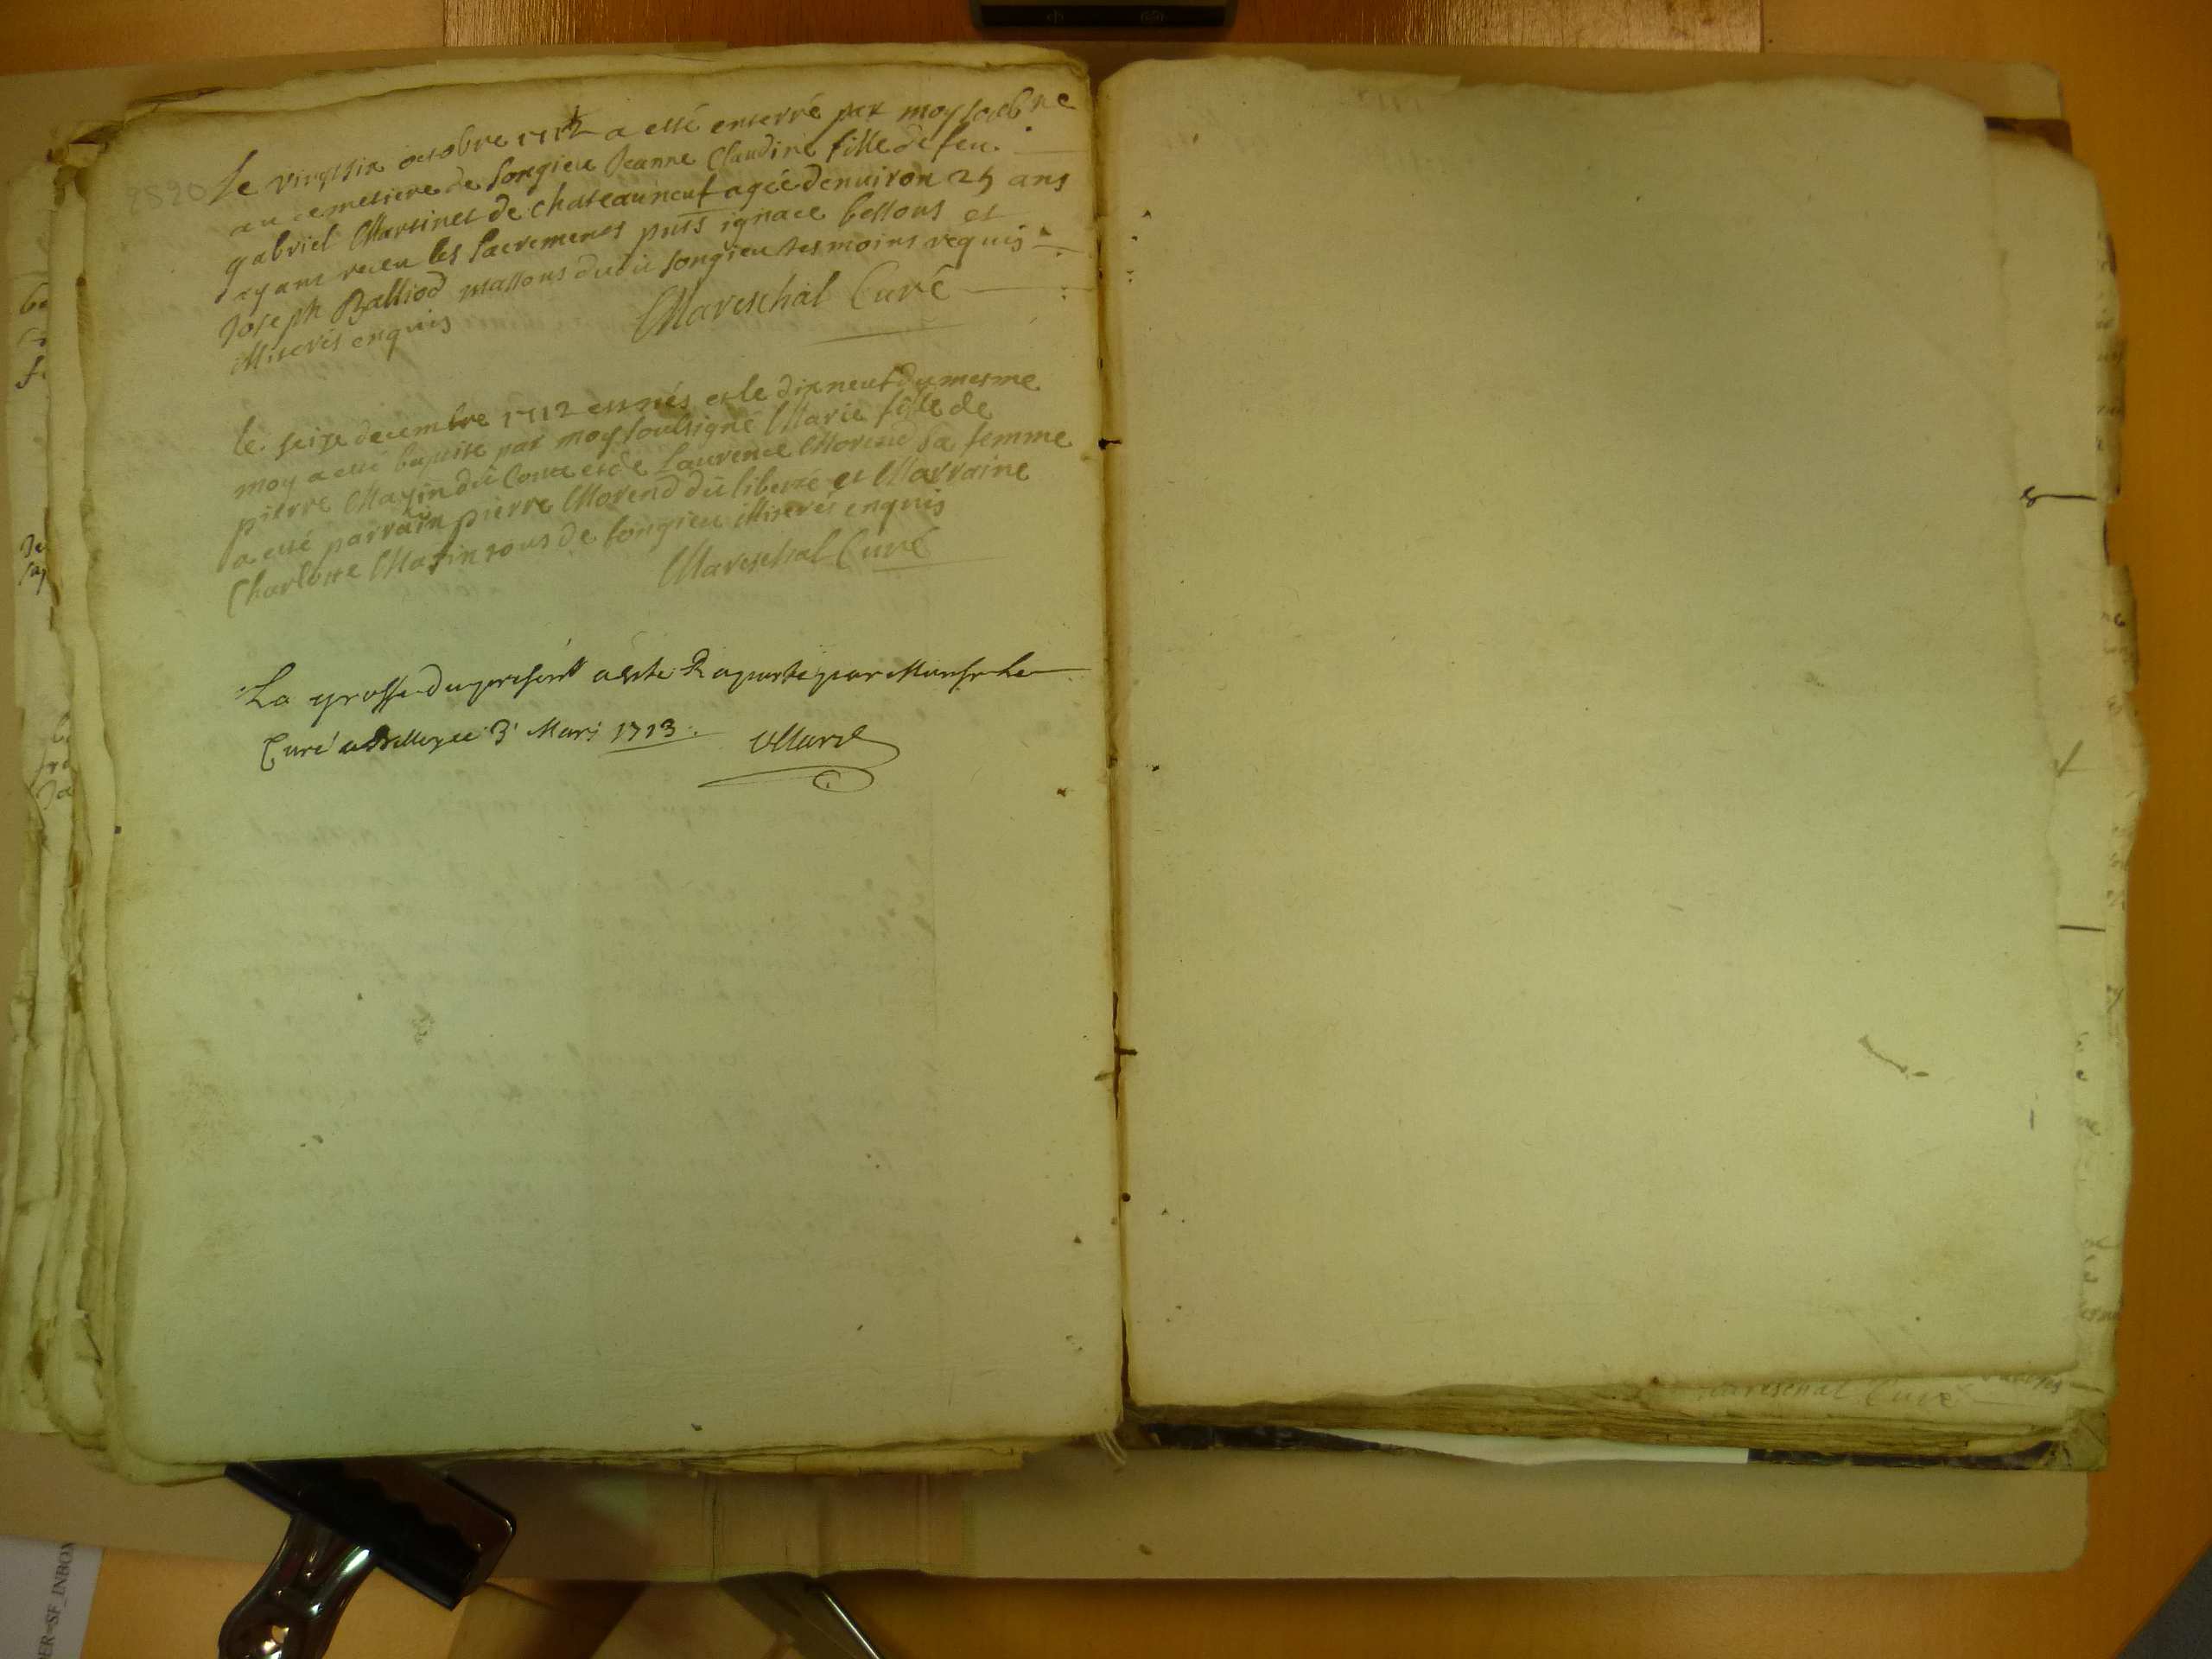 Le vingt six octobre 1712 a esté enterré par moy soubne
au cemetiere de Songieu Jeanne Claudine fille de feu
gabriel Martinet de chateauneuf agée denuiron 25 ans
ayant receu les sacrements pnts ignace bellous et
Joseph Balliod massons dudit songieu tesmoins requis
illiterés enquis Mareschal Curé
le seize decembre 1712 est nés et le dix neuf du mesme
moy a esté baptise par moy soubsigné Marie fille de
pierre Mazin dit Conte et de Laurence Morend sa femme
a esté parrain pierre Morend dit liberté et Marraine
Charlotte Mazin tous de songieu illiterés enquis
Mareschal Curé
La grosse du present a esté Raporté par Monsr Le
Curé a Belley ce 3 Mars 1713
Mareschal Curé